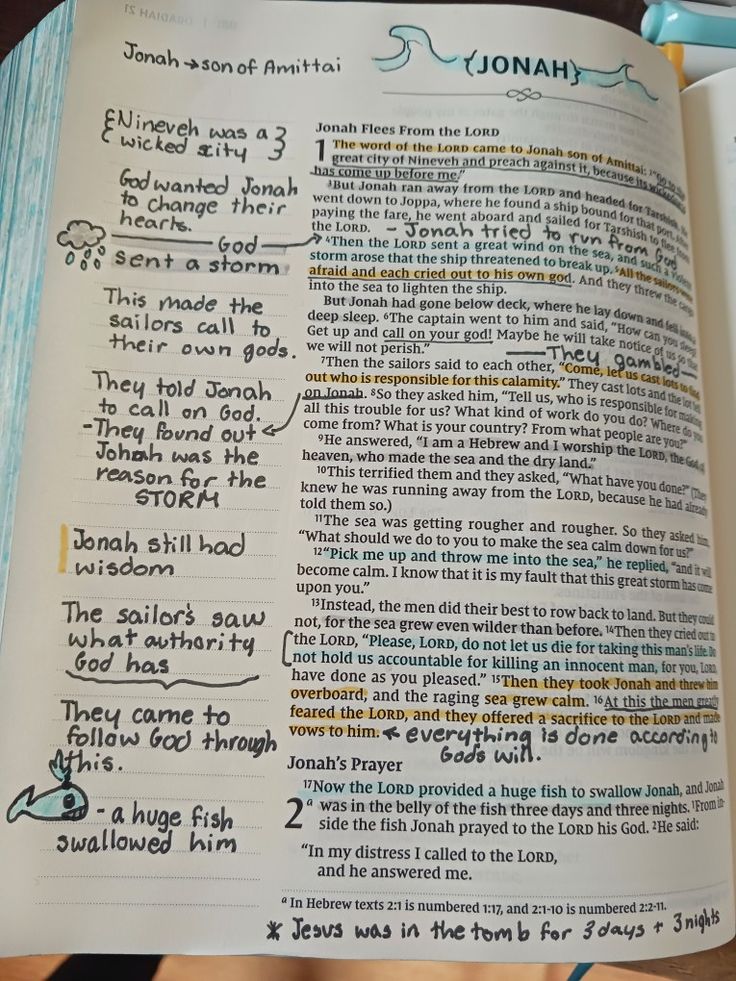 Jonah → son of Amittai
{JONAH}
{Nineveh was a }
{ wicked city }
God wanted Jonah
to change their
hearts.
God
sent a storm
This made the
sailors call to
their own gods.
They told Jonah
to call on God.
-They found out
Johah was the
reason for the
STORM
Jonah still had
wisdom
The sailor's saw
what authority
God has
They came to
follow God through
this.
- a huge fish
swallowed him
Jonah Flees From the LORD
1 The word of the LORD came to Jonah son of Amittai: ²"Go to the
great city of Nineveh and preach against it, because its wickedness
has come up before me."
³But Jonah ran away from the LORD and headed for Tarshish. He
went down to Joppa, where he found a ship bound for that port. After
paying the fare, he went aboard and sailed for Tarshish to flee from
the LORD. - Jonah tried to run from God
⁴Then the LORD sent a great wind on the sea, and such a violent
storm arose that the ship threatened to break up. ⁵All the sailors were
afraid and each cried out to his own god. And they threw the cargo
into the sea to lighten the ship.
But Jonah had gone below deck, where he lay down and fell into a
deep sleep. ⁶The captain went to him and said, "How can you sleep?
Get up and call on your god! Maybe he will take notice of us so that
we will not perish." They gambled
⁷Then the sailors said to each other, "Come, let us cast lots to find
out who is responsible for this calamity." They cast lots and the lot fell
on Jonah. ⁸So they asked him, "Tell us, who is responsible for making
all this trouble for us? What kind of work do you do? Where do you
come from? What is your country? From what people are you?"
⁹He answered, "I am a Hebrew and I worship the LORD, the God of
heaven, who made the sea and the dry land."
¹⁰This terrified them and they asked, "What have you done?" (They
knew he was running away from the LORD, because he had already
told them so.)
¹¹The sea was getting rougher and rougher. So they asked him,
"What should we do to you to make the sea calm down for us?"
¹²"Pick me up and throw me into the sea," he replied, "and it will
become calm. I know that it is my fault that this great storm has come
upon you."
¹³Instead, the men did their best to row back to land. But they could
not, for the sea grew even wilder than before. ¹⁴Then they cried out to
the LORD, "Please, LORD, do not let us die for taking this man's life. Do
not hold us accountable for killing an innocent man, for you, LORD,
have done as you pleased." ¹⁵Then they took Jonah and threw him
overboard, and the raging sea grew calm. ¹⁶At this the men greatly
feared the LORD, and they offered a sacrifice to the LORD and made
vows to him. ← everything is done according to
God's will.
Jonah's Prayer
¹⁷Now the LORD provided a huge fish to swallow Jonah, and Jonah
2 ᵃ was in the belly of the fish three days and three nights. ¹From in-
side the fish Jonah prayed to the LORD his God. ²He said:
"In my distress I called to the LORD,
and he answered me.
ᵃ In Hebrew texts 2:1 is numbered 1:17, and 2:1-10 is numbered 2:2-11.
* Jesus was in the tomb for 3 days + 3 nights